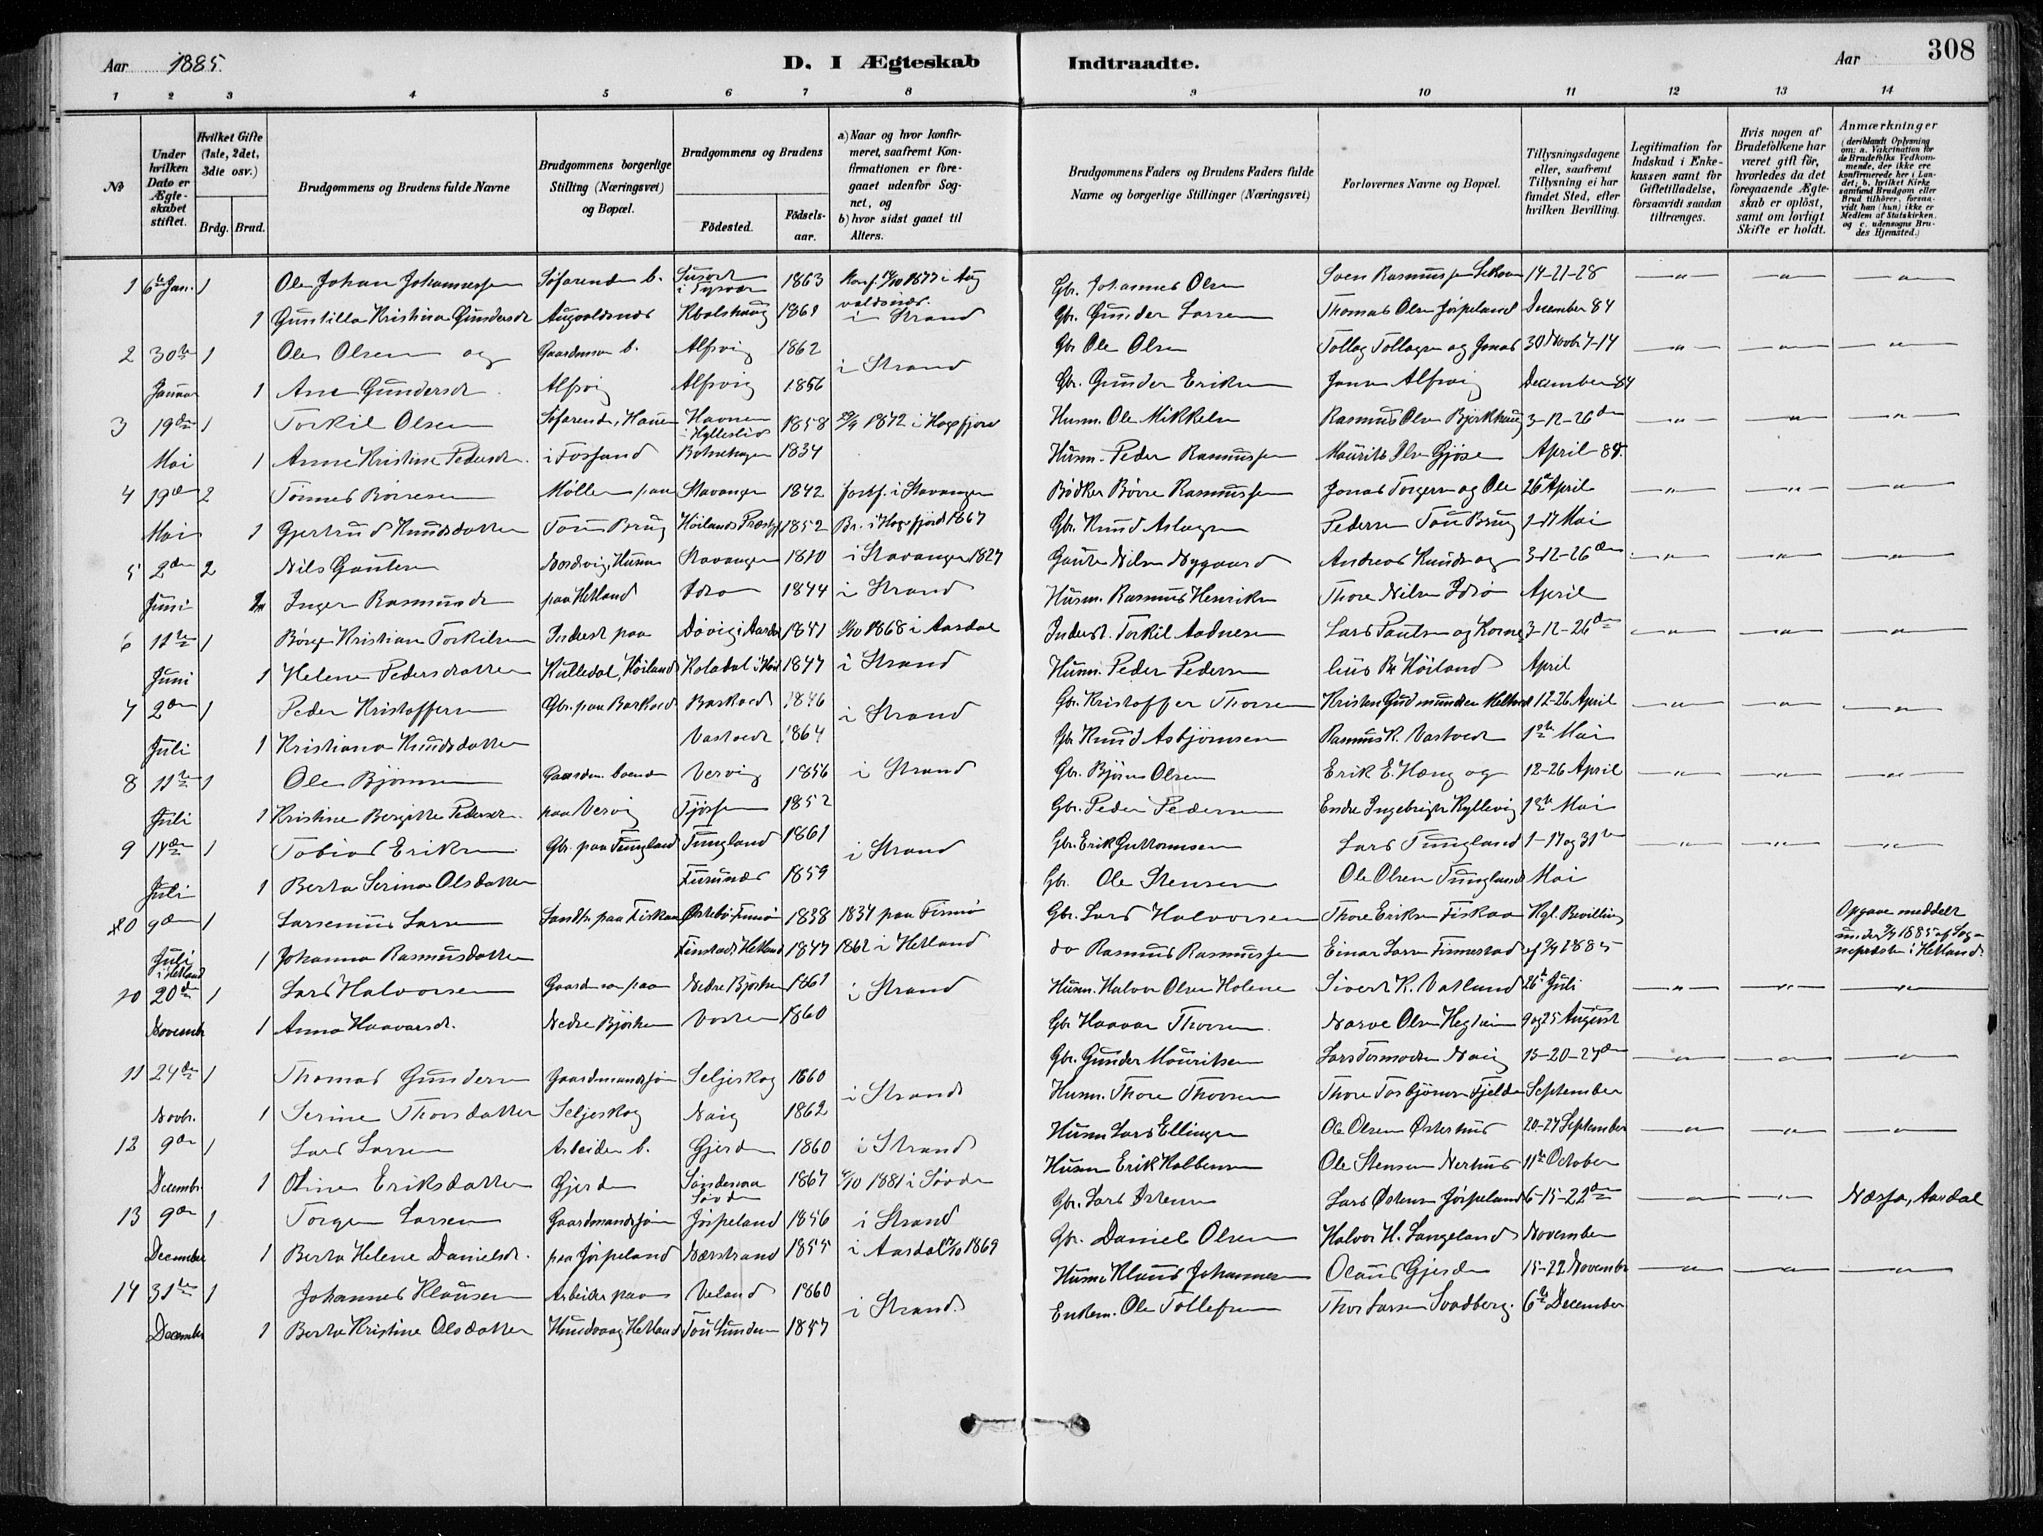 Aar 1885.
D. I Ægteskab Indtraadte.
Aar
308
1 2 3 4 5 6 7 8 9 10 11 12 13 14
No
Under hvilken Dato er Ægteskabet stiftet.
Hvilket Gifte (1ste, 2det, 3die osv.)
Brdg. Brud.
Brudgommens og Brudens fulde Navne
Brudgommens borgerlige Stilling (Næringsvei) og Bopæl.
Brudgommens og Brudens
Fødested.
Fødselsaar.
a) Naar og hvor konfirmeret, saafremt Konfirmationen er foregaaet udenfor Sognet, og
b) hvor sidst gaaet til Alters.
Brudgommens Faders og Brudens Faders fulde Navne og borgerlige Stillinger (Næringsvei)
Forlovernes Navne og Bopæl.
Tillysningsdagene eller, saafremt Tillysning ei har fundet Sted, efter hvilken Bevilling.
Legitimation for Indskud i Enkekassen samt for Giftetilladelse, forsaavidt saadan tiltrænges.
Hvis nogen af Brudefolkene har været gift før, hvorledes da det foregaaende Ægteskab er opløst, samt om lovligt Skifte er holdt.
Anmærkninger (deriblandt Oplysning om: a. Vakcination for de Brudefolks Vedkommende, der ikke ere konfirmerede her i Landet; b. hvilket Kirkesamfund Brudgom eller Brud tilhører, forsaavidt han (hun) ikke er Medlem af Statskirken, og c. udensogns Brudes Hjemsted.)
1 6te Jan. 1 Ole Johan Johannessen Søfarende b. i Tysvær 1863 Konf. 1877 i Aug Gbr. Johannes Olsen Sven Rasmussen 14-21-28 — " — — " — — " —
1 Guntilla Kristina Gundersdt Augvaldsnæs Kvalshaug 1861 valdsnæs i Strand Gbr. Gunder Larsen Thomas Olsen Jørpeland December 84
2 30te 1 Ole Olsen og Gaardmand b. Alsvig 1862 i Strand Gbr Ole Olsen Tollag Tollagsen og Jonas 30 Novbr 7-14 — " — — " — — " —
Januar 1 Ane Gundersdt. Alsvig Alsvig 1856 Gbr. Gunder Eriksen Alsvig December 84
3 19de 1 Torkil Olsen Søfarende, Havnen 1858 1872 i Høgsfjord Husm. Ole Mikkelsen Rasmus Olsen Bjørkhaug 3-12-26de — " — — " — — " —
Mai 1 Anne Kristine Pedersdt. i Fossand Botnehagen 1834 Husm. Peder Rasmussen Maurits Gjøse April 85.
4 19de 2 Tønnes Børresen Møller paa Stavanger 1842 i Stavanger Bødker Børre Rasmussen Jonas Torgersen og Ole 26 April — " — — " — — " —
Mai 1 Gjertrud Knudsdatter Tou Brug Høilands Præstgj 1852 Br. i Høgsfjord 1867 Gbr. Knud Aslagsen Pedersen Tou Brug 1-17 Mai
5 2den 2 Nils Gautesen Husm Stavanger 1810 i Stavanger 1827 Gaute Nilsen Nygaard Andreas Knudsen og 3-12-26de — " — — " — — " —
Juni Inger Rasmusdt paa Hetland Idsø 1844 i Strand Husm. Rasmus Henriksen Thore Nilsen Idsø April
6 11te 1 Børge Kristian Torkilsen Inderst paa 1841 1868 i Aardal Inderst. Torkil Aadnesen Lars Paulsen og Korne 3-12-26de — " — — " — — " —
Juni 1 Helene Pedersdatter Høiland 1847 i Strand Husm. Peder Pedersen lius Høiland April
7 2den 1 Peder Kristoffersen Gbr. paa Barkved Barkved 1846 i Strand Gbr. Kristoffer Thorsen Kristen Gudmundsen 12-26 April — " — — " — — " —
Juli 1 Kristiana Knudsdatter Vastvedt 1864 Gbr Knud Asbjørnsen Rasmus K. Vastvedt 1ste Mai
8 11te 1 Ole Bjørnsen Gaardm. boende Vervig 1856 i Strand Gbr. Bjørn Olsen Erik E. og 12-26 April — " — — " — — " —
Juli 1 Kristine Bergitte Pedersdt. paa Vervig 1852 Gbr. Peder Pedersen Endre Ingebrigts 1ste Mai
9 14de 1 Tobias Eriksen Gbr. paa Tungland Tungland 1861 i Strand Gbr. Erik Guttormsen Lars Tungland 1-17 og 31te — " — — " — — " —
Juli 1 Berta Serina Olsdatter Furunæs 1859 Gbr. Ole Stensen Ole Olsen Tungland Mai
10 9de 1 Larsenius Larsen paa Fiskaa 1838 1837 paa Finnø Gbr. Lars Halvorsen Thore Eriksen Fiskaa Kgl. Bevilling Opgave meddelt
Juli i Hetland 1 Johanna Rasmusdatter Hetland 1847 1862 i Hetland do Rasmus Rasmussen Einar Larsen Finnestad 1885 under 1885 af Sognepræsten i Hetland.
10 20de 1 Lars Halvorsen Gaardm paa Nedre 1861 i Strand Husm. Halvor Olsen Holene Sivert K. Vatland 26 Juli — " — — " — — " —
Novembr 1 Anna Haavarsdt. Nedre Vostre 1860 Gbr Haavar Thorsen Narve Olsen 9 og 25 August
11 24de 1 Thomas Gundersen Gaardmandssøn Seljeskog 1860 i Strand Gbr. Gunder Mouritsen Lars Tormodsen Naig 13-20-27de — " — — " — — " —
Novbr. 1 Serine Thorsdatter Seljeskog Naig 1862 Husm. Thore Thorsen Thore Torbjørnsen Fjelde September
12 9de 1 Lars Larsen Arbeider b. Gjerde 1860 i Strand Husm Lars Ellingsen Ole Olsen Østerhus 20-27 September — " — — " — — " —
Decembr. 1 Oline Eriksdatter Gjerde Søvde 1867 1881 i Søvde Husm Erik Kolbensen Ole Stensen Nerhus 11te October
13 9de 1 Torger Larsen Gaardmandssøn Jørpeland 1856 i Strand Gbr. Lars Østensen Lars Østensen Jørpeland 6-15-22de — " — — " — Aardal
December 1 Berta Helene Danielsdt. paa Jørpeland Nærstrand 1855 i Aardal 1869 Gbr. Daniel Olsen Halvor H. Langeland November
14 31te 1 Johannes Klausen Arbeider paa Veland 1860 i Strand. Husm Klaus Johannesen Olaus Gjerde 15-22 Novembr — " — — " — — " —
December 1 Berta Kristine Olsdatter Hundvaag Hetland 1857 Enkem. Ole Tollefsen Thor Larsen Svadberg. 6te December